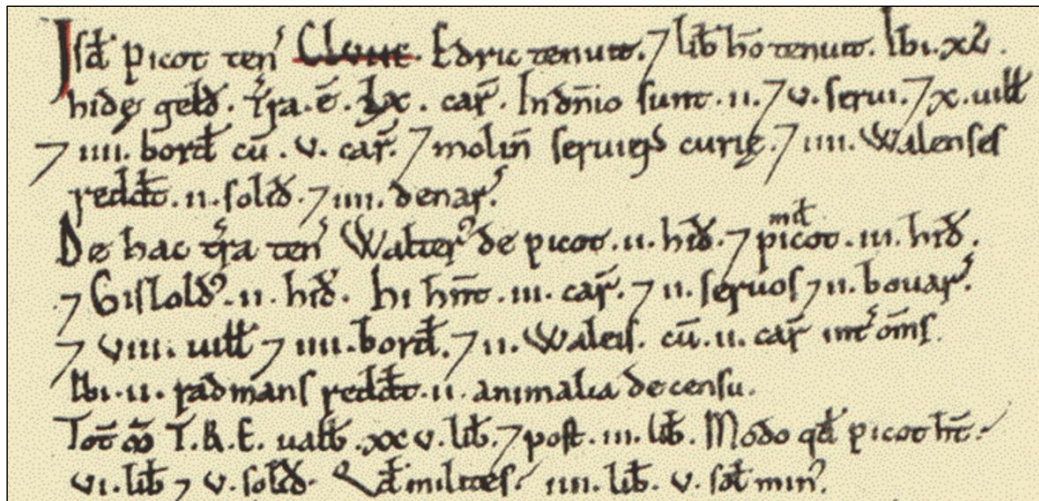 Isd̄ Picot ten̄ Clune. Edric tenuit. ⁊ lib̄ hō tenuit. Ibi. xv.
hidę geld̄. Tr̄a. ē. lx. car̄. In dn̄io sunt. ii. ⁊ v. serui. ⁊ x. uill̄
⁊ iiii. bord̄ cū. v. car̄. ⁊ molin̄ seruieɴs curię. ⁊ iiii. Walenses
redd̄t. ii. solid̄. ⁊ iiii. denar̄.
De hac tr̄a ten̄ Walter⁹ de picot. ii. hid̄. ⁊ picot mil̄. iii. hid̄.
⁊ Gislold⁹. ii. hid̄. Hi hn̄t. iii. car̄. ⁊ ii. seruos ⁊ ii. bouar̄.
⁊ viii. uill̄ ⁊ iiii. bord̄. ⁊ ii. Waleis. cū. ii. car̄ int̄ om̄s.
Ibi. ii. radmans redd̄t. ii. animalia de censu.
Tot̄ m̄ T.R.E. ualb̄. xxv. lib̄. ⁊ post. iii. lib̄. Modo qd̄ picot ht̄.
vi. lib̄ ⁊ v. solid̄. Qd̄ milites. iiii. lib̄. v. sol̄ min⁹.